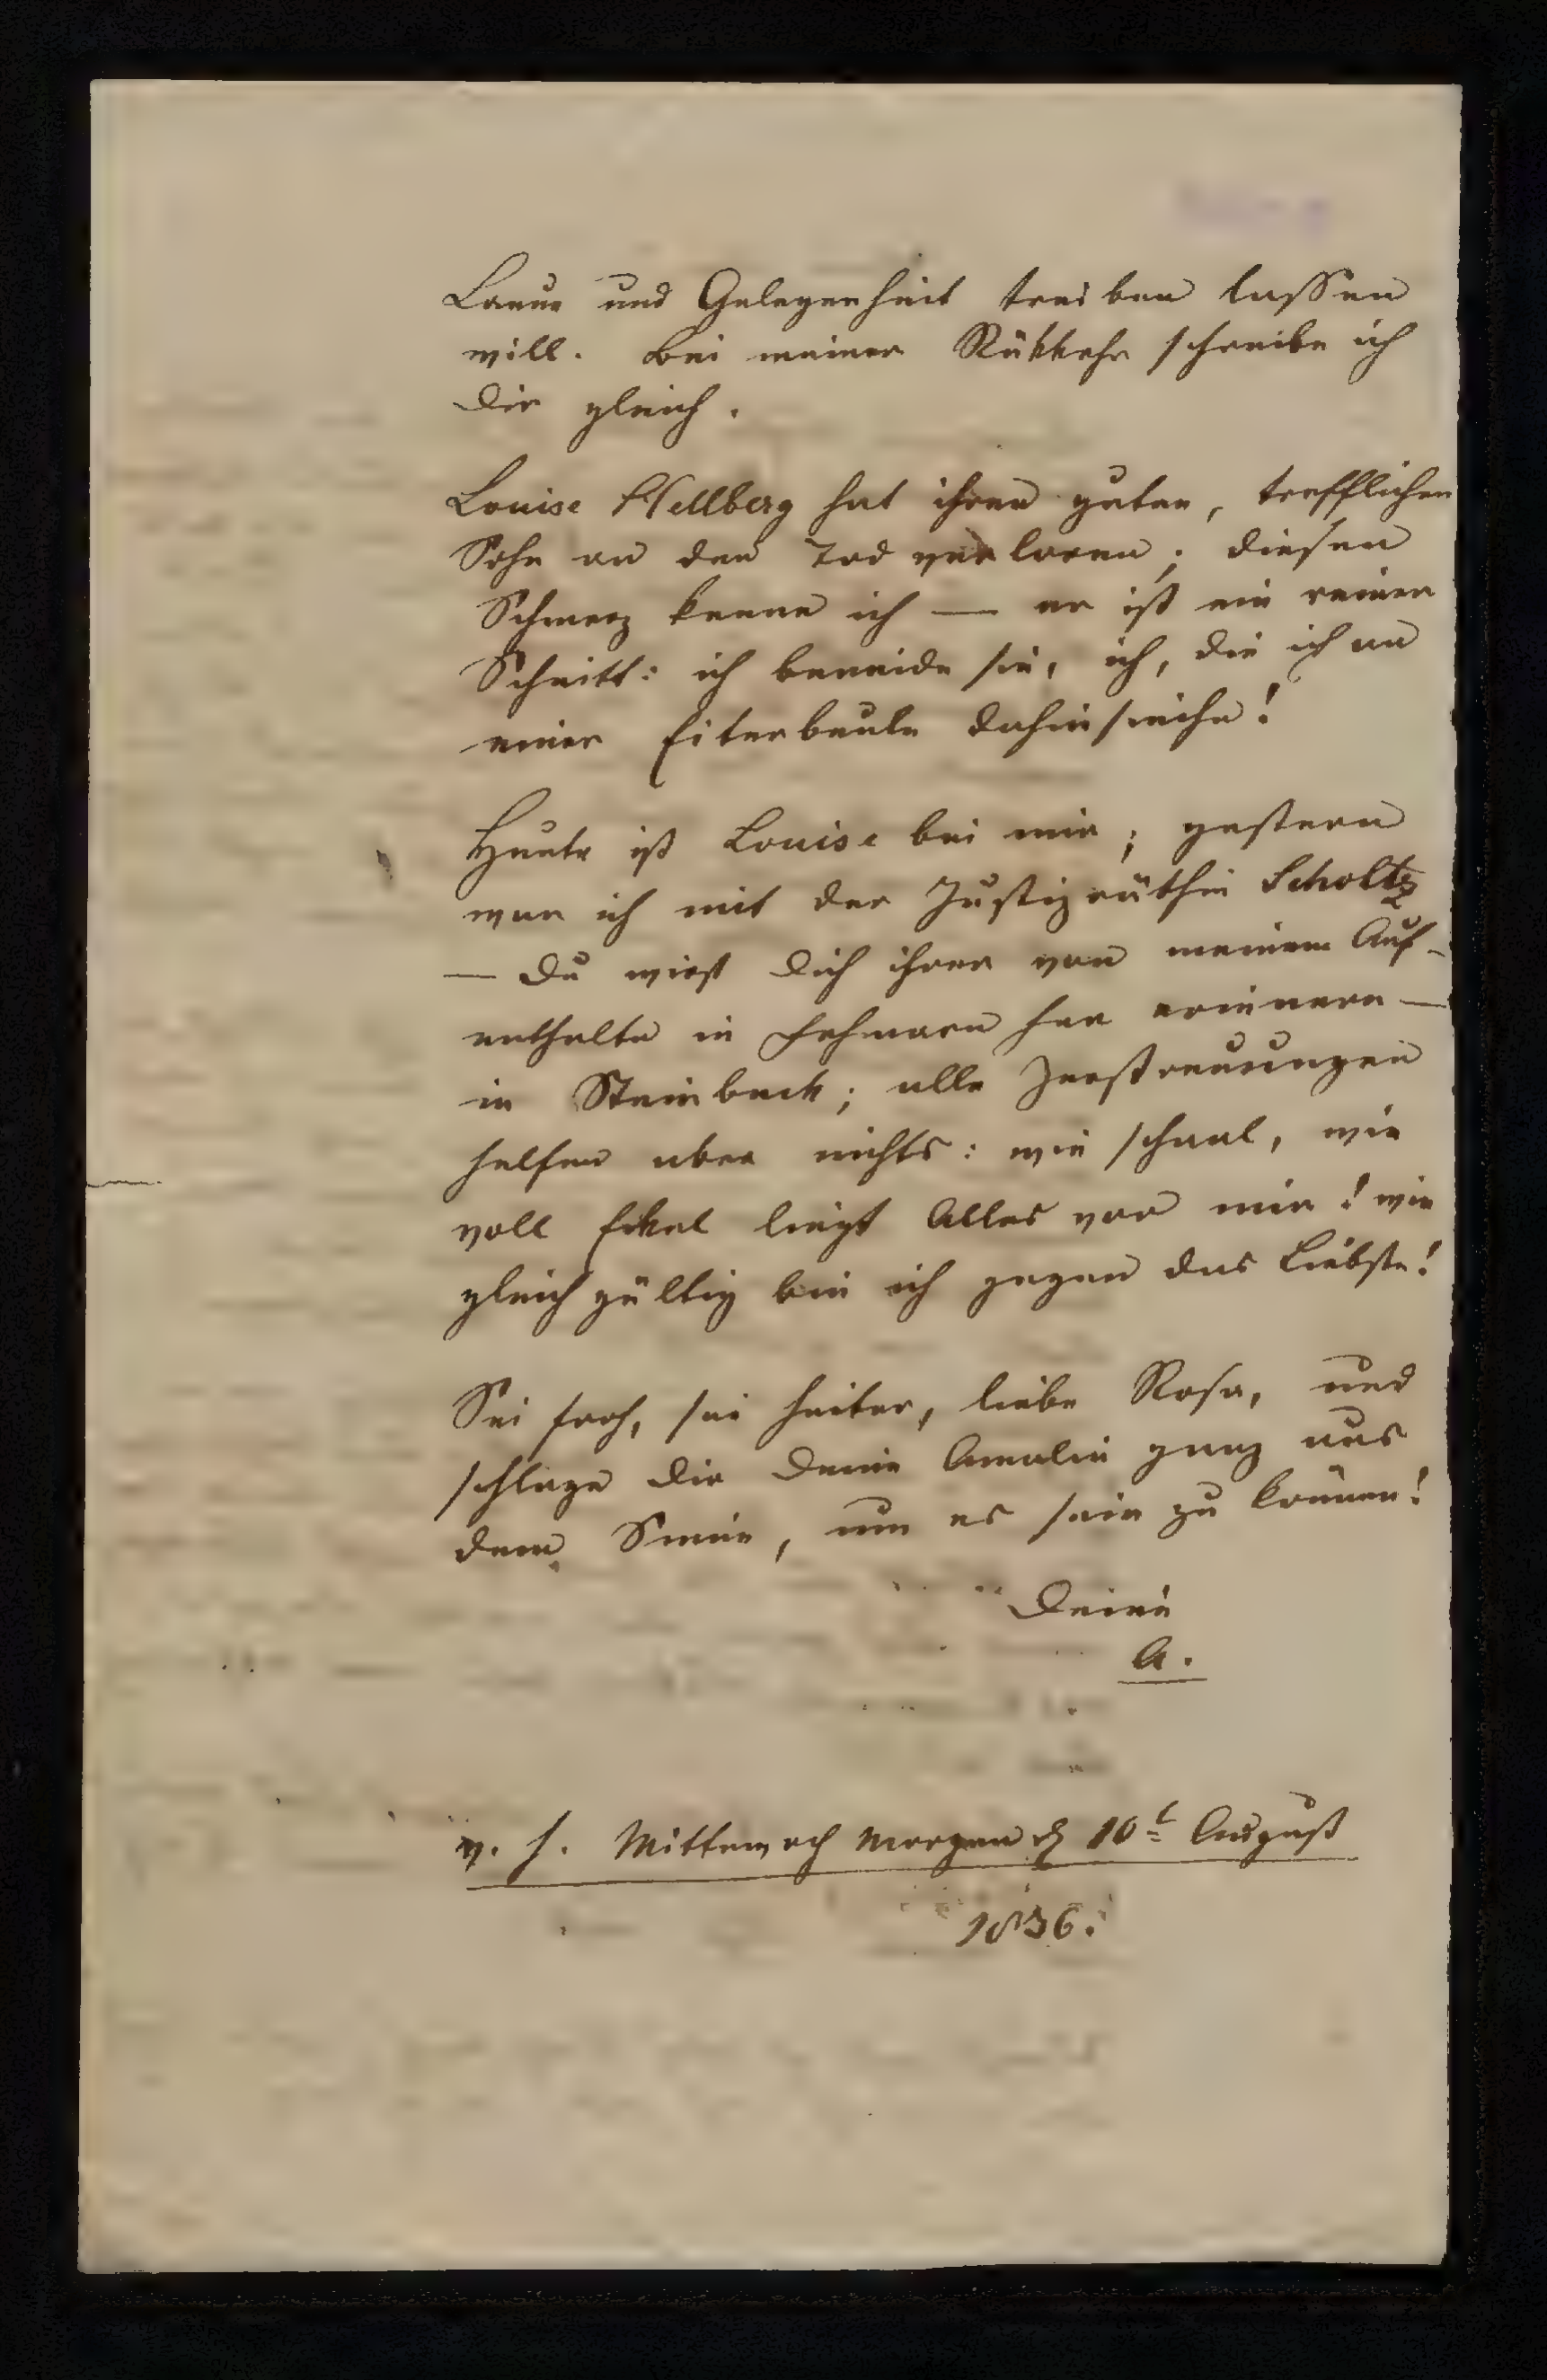 Laune und Gelegenheit treiben lassen
will. Bei meiner Rükkehr schreibe ich
Dir gleich.
Louise Hellberg hat ihren guten, trefflichen
Sohn an den Tod verloren; diesen
Schmerz kenne ich — er ist ein reiner
Schnitt: ich beneide sie, ich, die ich an
einer Eiterbeule dahinsieche!
Heute ist Louise bei mir; gestern
war ich mit der Justizräthin Scholtz
— Du wirst Dich ihrer von meinem Auf-
enthalte in Fehmarn her erinnern —
in Steinbeck; alle Zerstreuungen
helfen aber nichts: wie schaal, wie
voll Ekel liegt Alles vor mir! wie
gleichgültig bin ich gegen das Liebste!
Sei froh, sei heiter, liebe Rosa, und
schlage Dir Deine Amalie ganz aus
dem Sinne, um es sein zu können!
Deine
A.
v. H. Mittewoch Morgen d 10t August
1836.